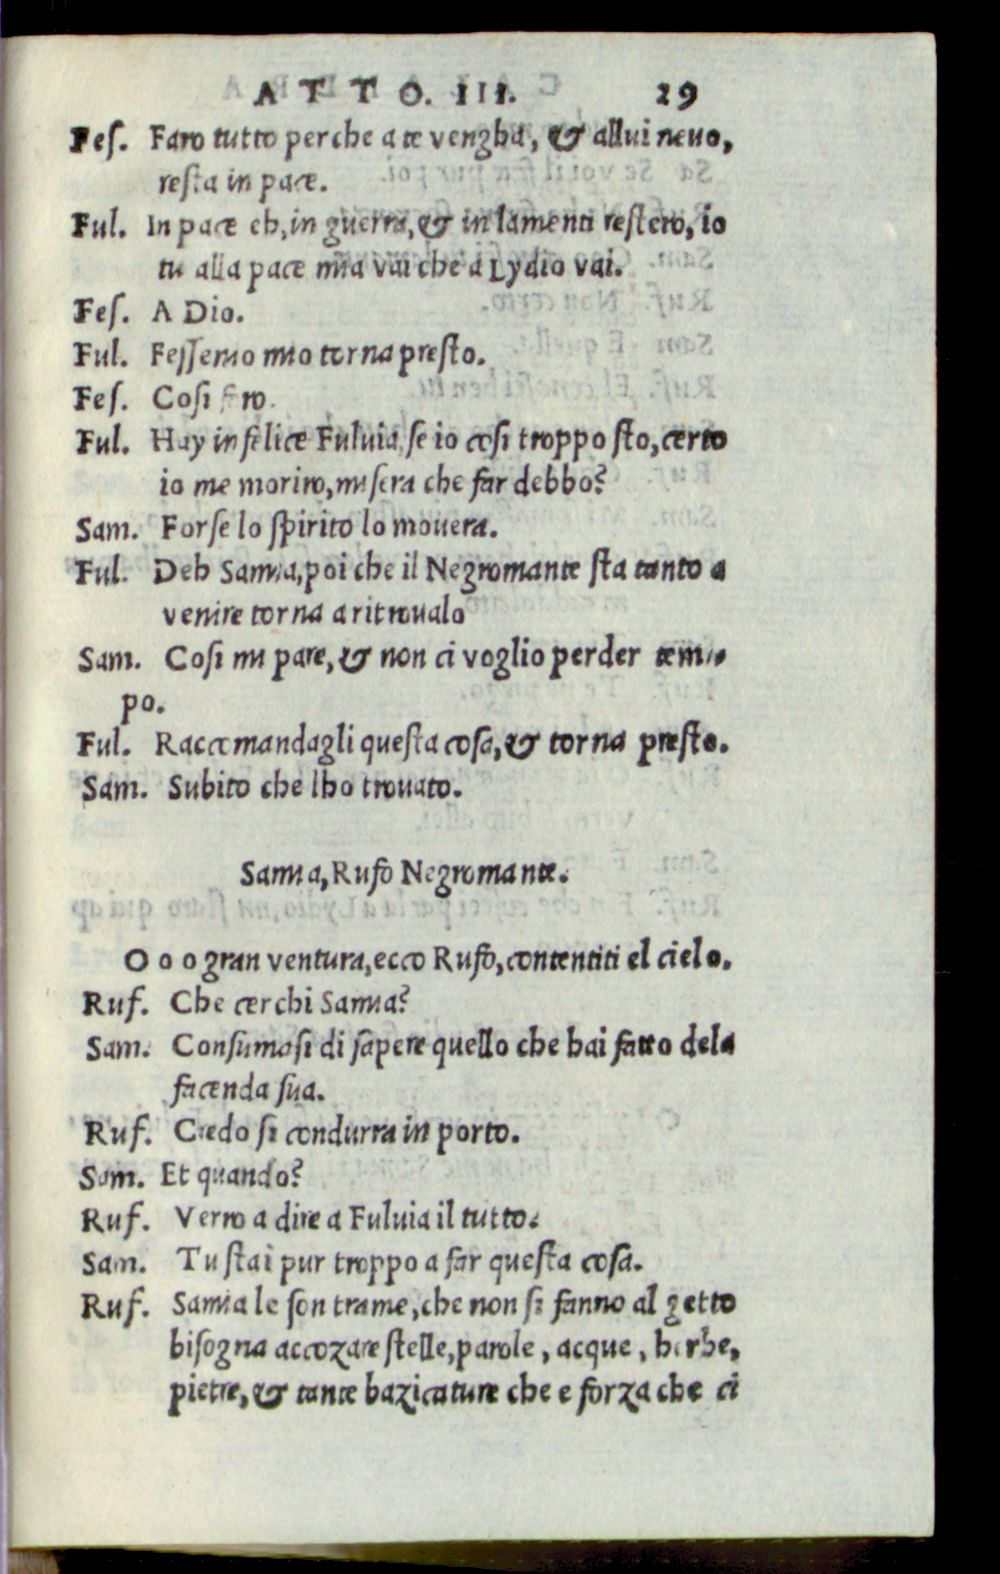 ATTO. III. 29
Fes. Faro tutto perche a te vengha, & allui neuo,
resta in pace.
Ful. In pace eh, in guerra, & in lamenti restero, io
tu alla pace mia vai che a Lydio vai.
Fes. A Dio.
Ful. Fessenio mio torna presto.
Fes. Cosi fro.
Ful. Hay infelice Fuluia, se io cosi troppo sto, certo
io me moriro, misera che far debbo?
Sam. Forse lo spirito lo mouera.
Ful. Deh Samia, poi che il Negromante sta tanto a
venire torna a ritroualo
Sam. Cosi mi pare, & non ci voglio perder tem-
po.
Ful. Raccomandagli questa cosa, & torna presto.
Sam. Subito che lho trouato.
Samia, Rufo Negromante.
O o o gran ventura, ecco Rufo, contentiti el cielo.
Ruf. Che cerchi Samia?
Sam. Consumasi di sapere quello che hai fatto dela
facenda sua.
Ruf. Credo si condurra in porto.
Sam. Et quando?
Ruf. Verro a dire a Fuluia il tutto.
Sam. Tu stai pur troppo a far questa cosa.
Ruf. Samia le son trame, che non si fanno al getto
bisogna accozare stelle, parole, acque, herbe,
pietre, & tante bazicature che e forza che ci